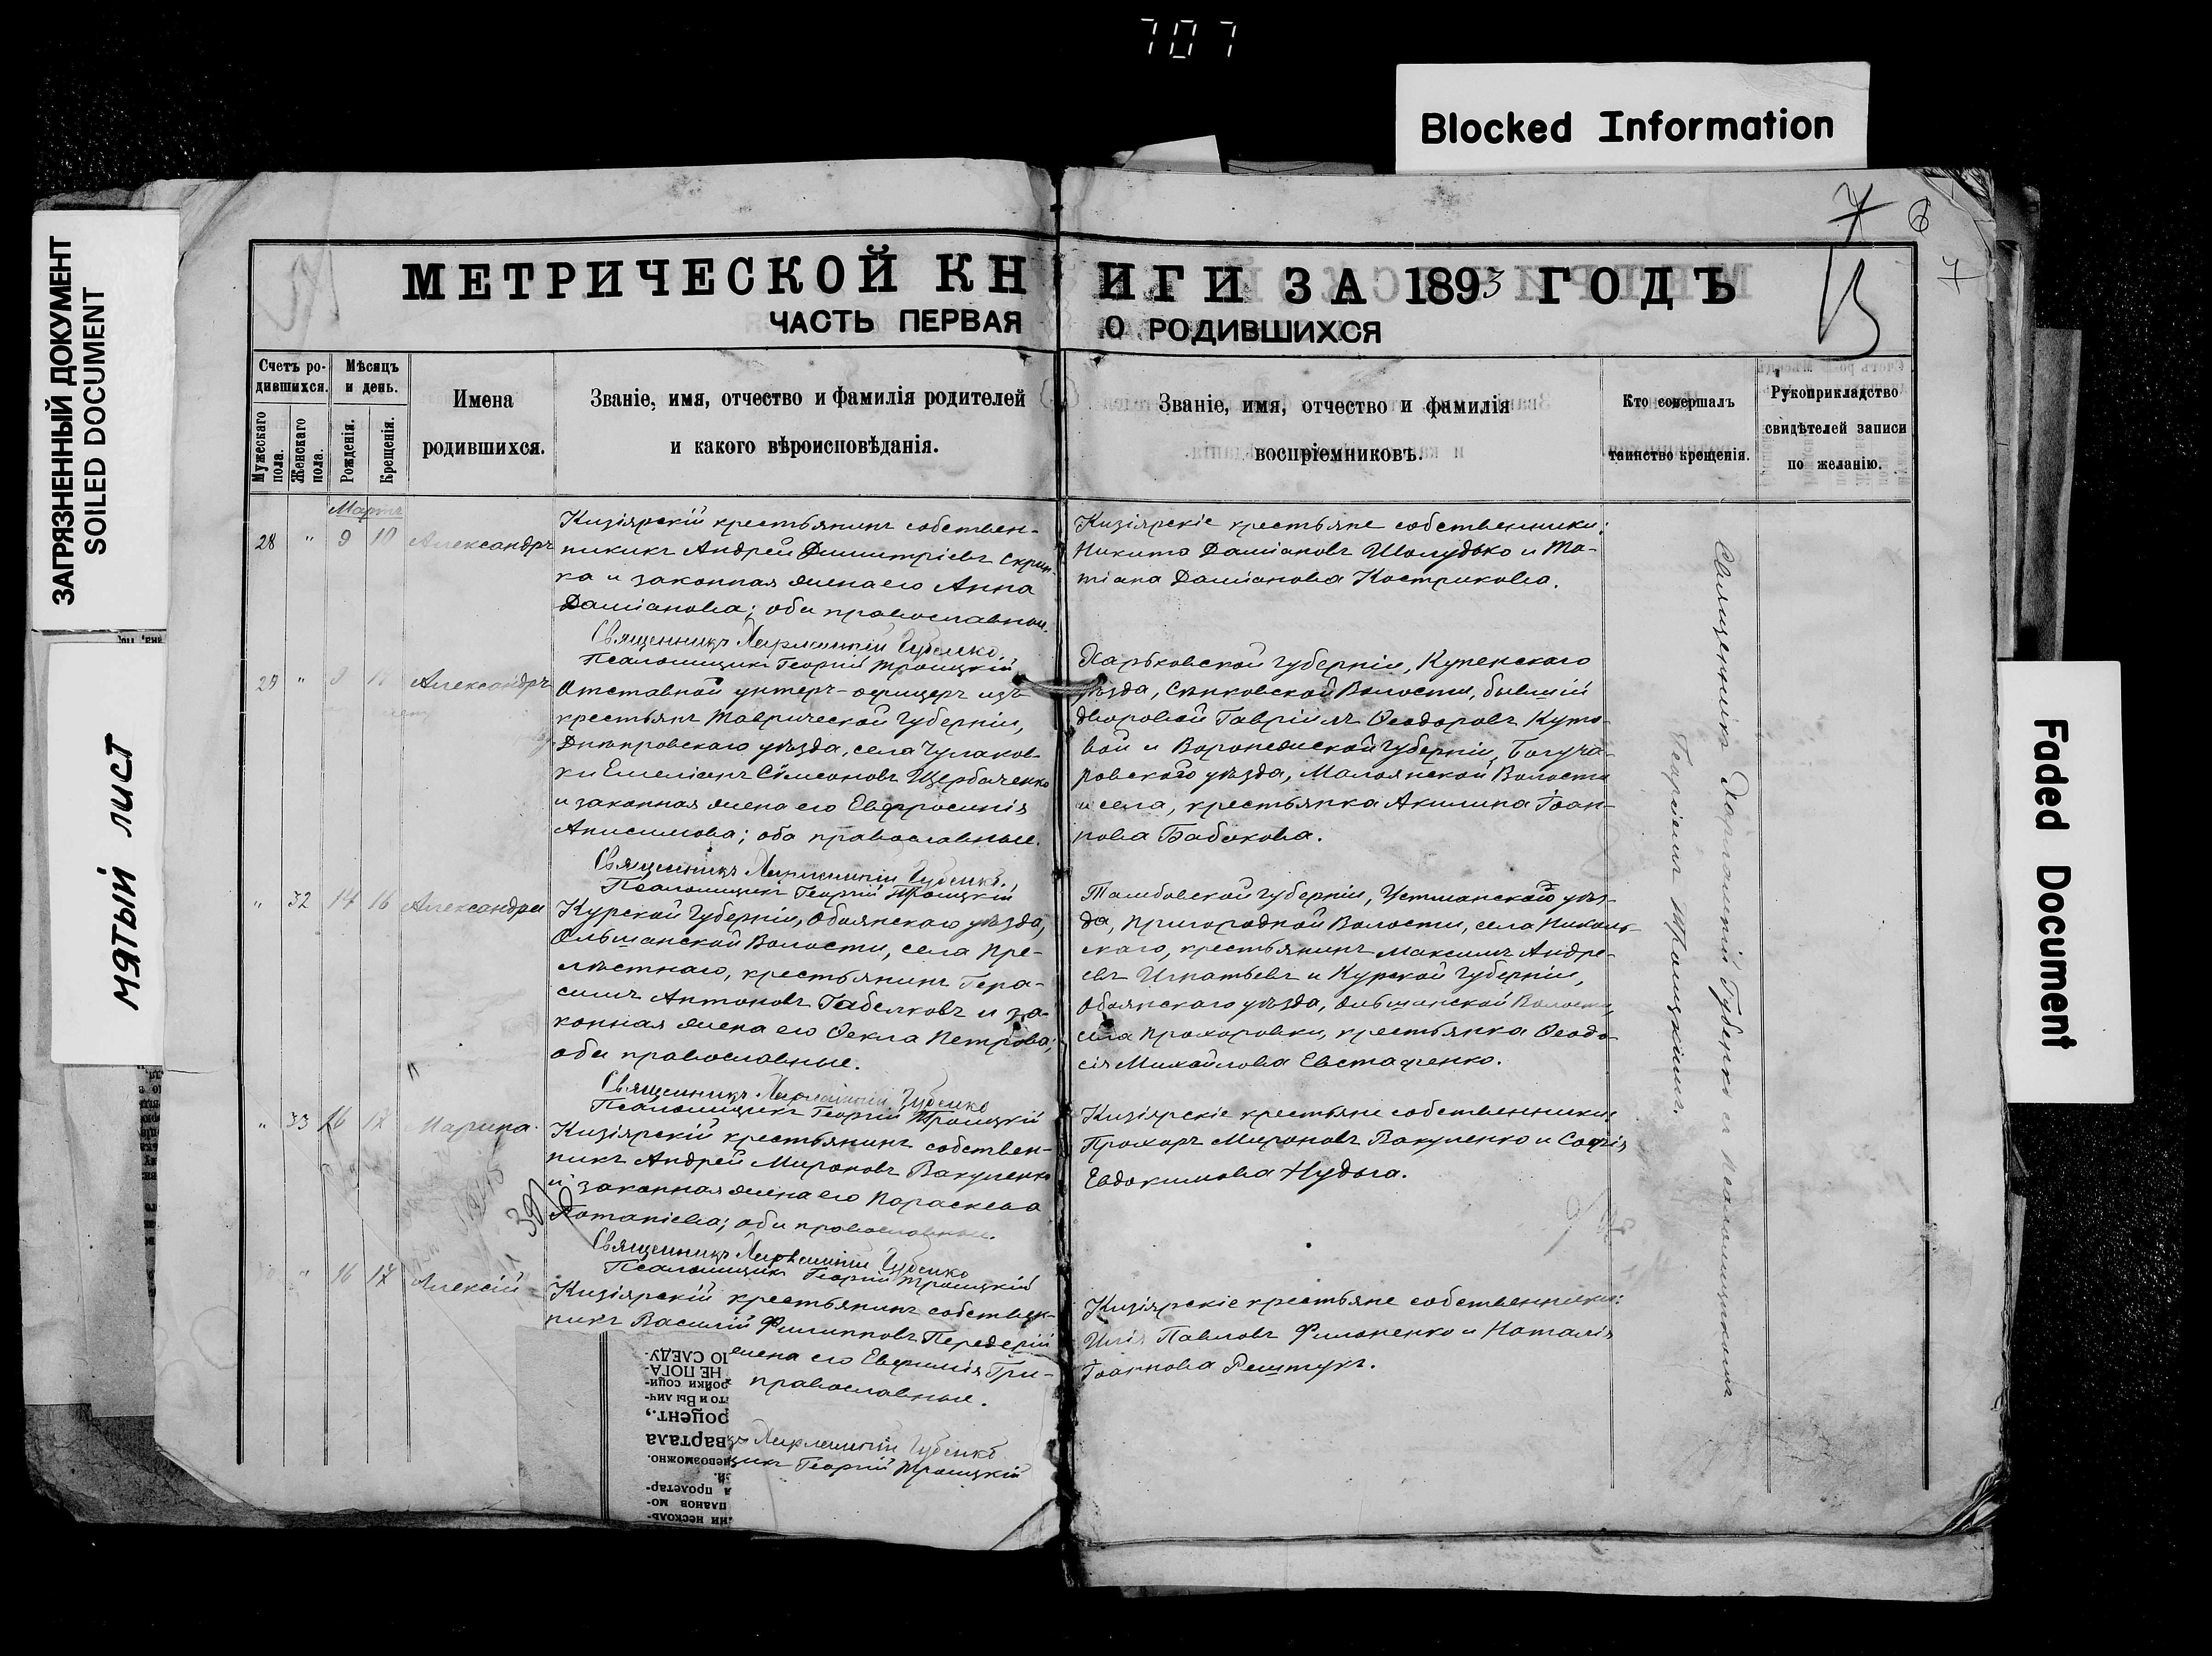 707
Blocked Information
ЗАГРЯЗНЕННЫЙ ДОКУМЕНТ
SOILED DOCUMENT
МЯТЫЙ ЛИСТ
Faded Document
7 6
МЕТРИЧЕСКОЙ КНИГИ ЗА 1893 ГОДЪ
ЧАСТЬ ПЕРВАЯ О РОДИВШИХСЯ
Счетъ ро-
дившихся.
Мужескаго пола.
Женскаго пола.
Мѣсяцъ
и день.
Рожденія.
Крещенія.
Имена
родившихся.
Званіе, имя, отчество и фамилія родителей
и какого вѣроисповѣданія.
Званіе, имя, отчество и фамилія
воспріемниковъ.
Кто совершалъ
таинство крещенія.
Рукоприкладство
свидѣтелей записи
по желанію.
Мартъ
28 " 9 10 Александръ
Кизіярскій крестьянинъ собствен-
никъ Андрей Димитріевъ
ка и законная жена его Анна
Даміанова; оба православные.
Священникъ Харлампій Губенко.
Псаломщикъ Георгій Троицкій
Кизіярскіе крестьяне собственники:
Никита Даміановъ Шолудько и Та-
тіана Даміанова Кострикова.
29 " Александръ
Отставной унтеръ-офицеръ изъ
крестьянъ Таврической Губерніи,
Днѣпровскаго уѣзда, села Чулаков-
ки Емеліанъ Сѵмеоновъ Щербаченко
и законная жена его Евфросинія
Анисимова; оба православные.
Священникъ Харлампій Губенко.
Псаломщикъ Георгій Троицкій
Харьковской Губерніи, Купенскаго
уѣзда, Сѣнковской Волости, бывшій
дворовой Гавріилъ Ѳеодоровъ Куто-
вой и Воронежской Губерніи, Богуча-
ровскаго уѣзда, Волости
и села, крестьянка Акилина Іоан-
нова Бабакова.
" 32 14 16 Александра
Курской Губерніи, Обоянскаго уѣзда,
Ольшанской Волости, села Пре-
лѣстнаго, крестьянинъ Гера-
симъ Антоновъ Габелковъ и за-
конная жена его Ѳекла Петрова;
оба православные.
Священникъ Харлампій Губенко
Псаломщикъ Георгій Троицкій
Тамбовской Губерніи, Усманскаго уѣз-
да, Пригородной Волости, села Николь-
скаго, крестьянинъ Максимъ Андре-
евъ Игнатьевъ и Курской Губерніи,
Обоянскаго уѣзда, Ольшанской Волости,
села Прохоровки, крестьянка Ѳеодо-
сія Михайлова Евстафенко.
" 33 16 17 Марина.
Кизіярскій крестьянинъ собствен-
никъ Андрей Мироновъ Вакуленко
и законная жена его Параскева
Потапіева; оба православные.
Священникъ Харлампій Губенко
Псаломщикъ Георгій Троицкій
Кизіярскіе крестьяне собственники:
Прохоръ Мироновъ Вакуленко и Софія
Евдокимова Нудьга.
" 16 17 Алексій
Кизіярскій крестьянинъ собствен-
никъ Василій Филипповъ Передерій
жена его Евфимія Гри-
православные.
Харлампій Губенко
Георгій Троицкій
Кизіярскіе крестьяне собственники:
Илія Павловъ Филоненко и Наталія
Іоаннова Рештукъ.
Священникъ Харлампій Губенко съ Псаломщикомъ
Георгіемъ Троицкимъ.
Ю СЛЕДУ-
НЕ ПОГА-
ройки соци-
что и Вы лич-
роцент.,
вартала
невозможно.
пролетар-
планов мо-
ии несколь-